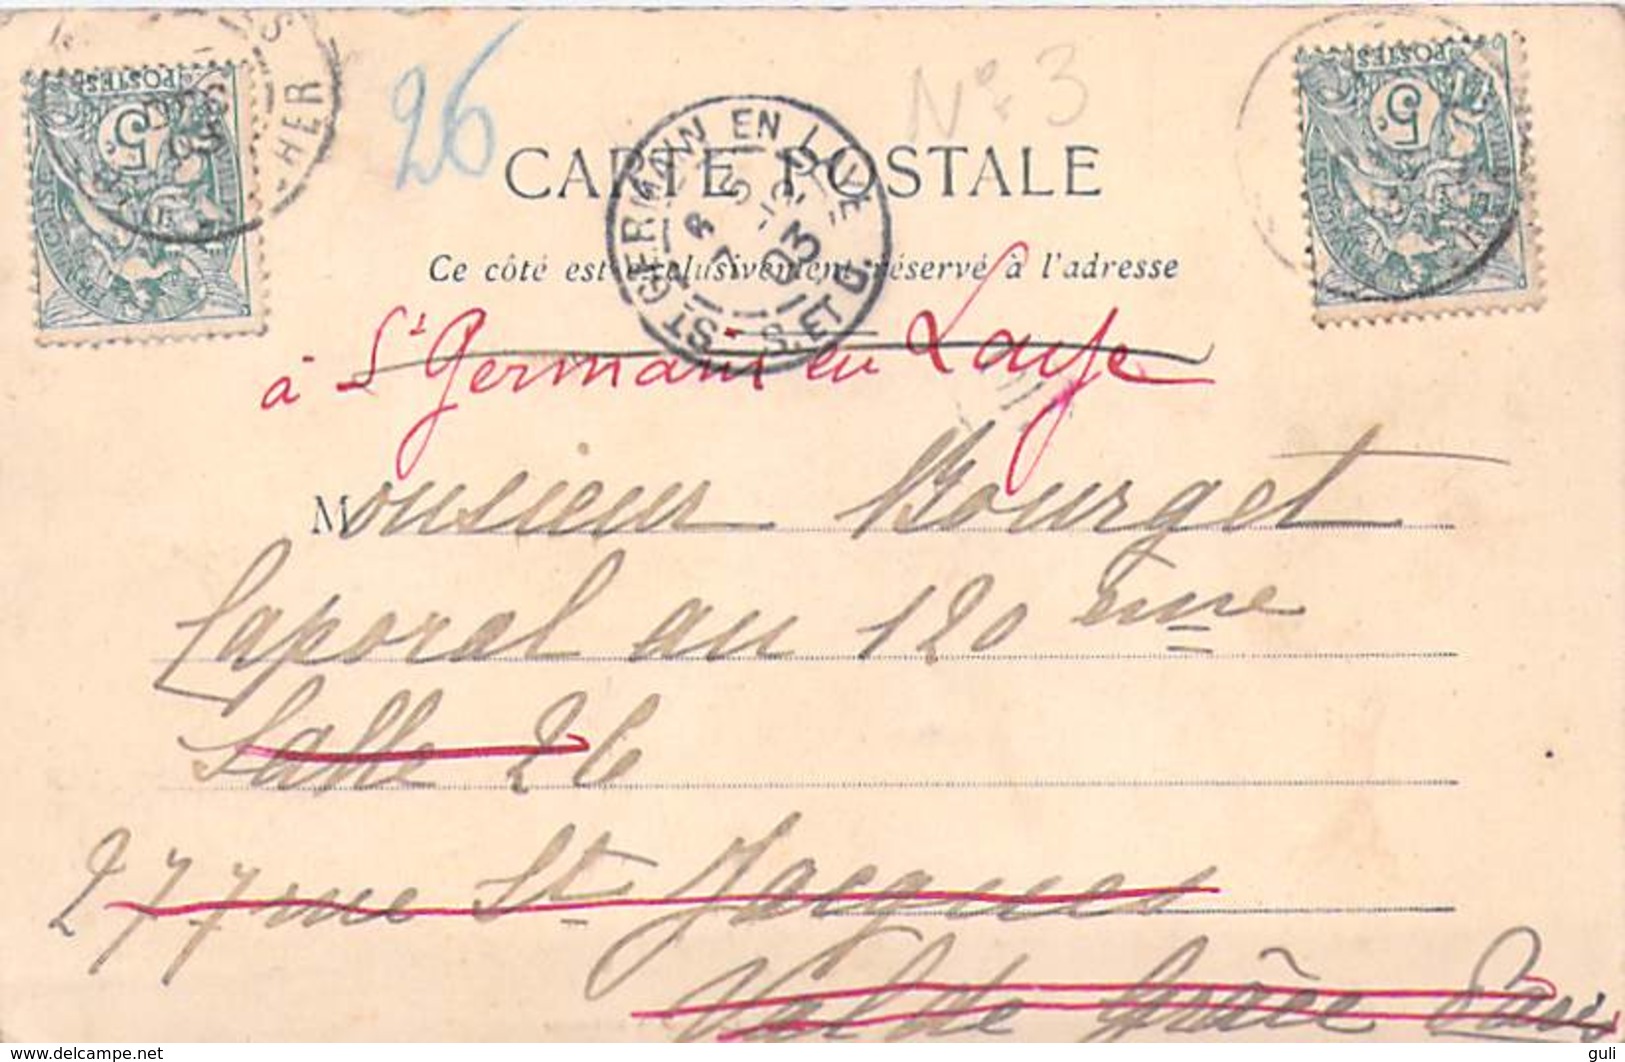 26
N° 3
CARTE POSTALE
Ce côté est exclusivement réservé à l'adresse
ST GERMAIN EN LAYE
S. ET O.
03
POSTES
5c
POSTES
5c
HER
à St Germain en Laye
Monsieur Bourget
Caporal au 120 ème
Salle 26
277 rue St Jacques
Val de Grâce Paris
© delcampe.net
guli